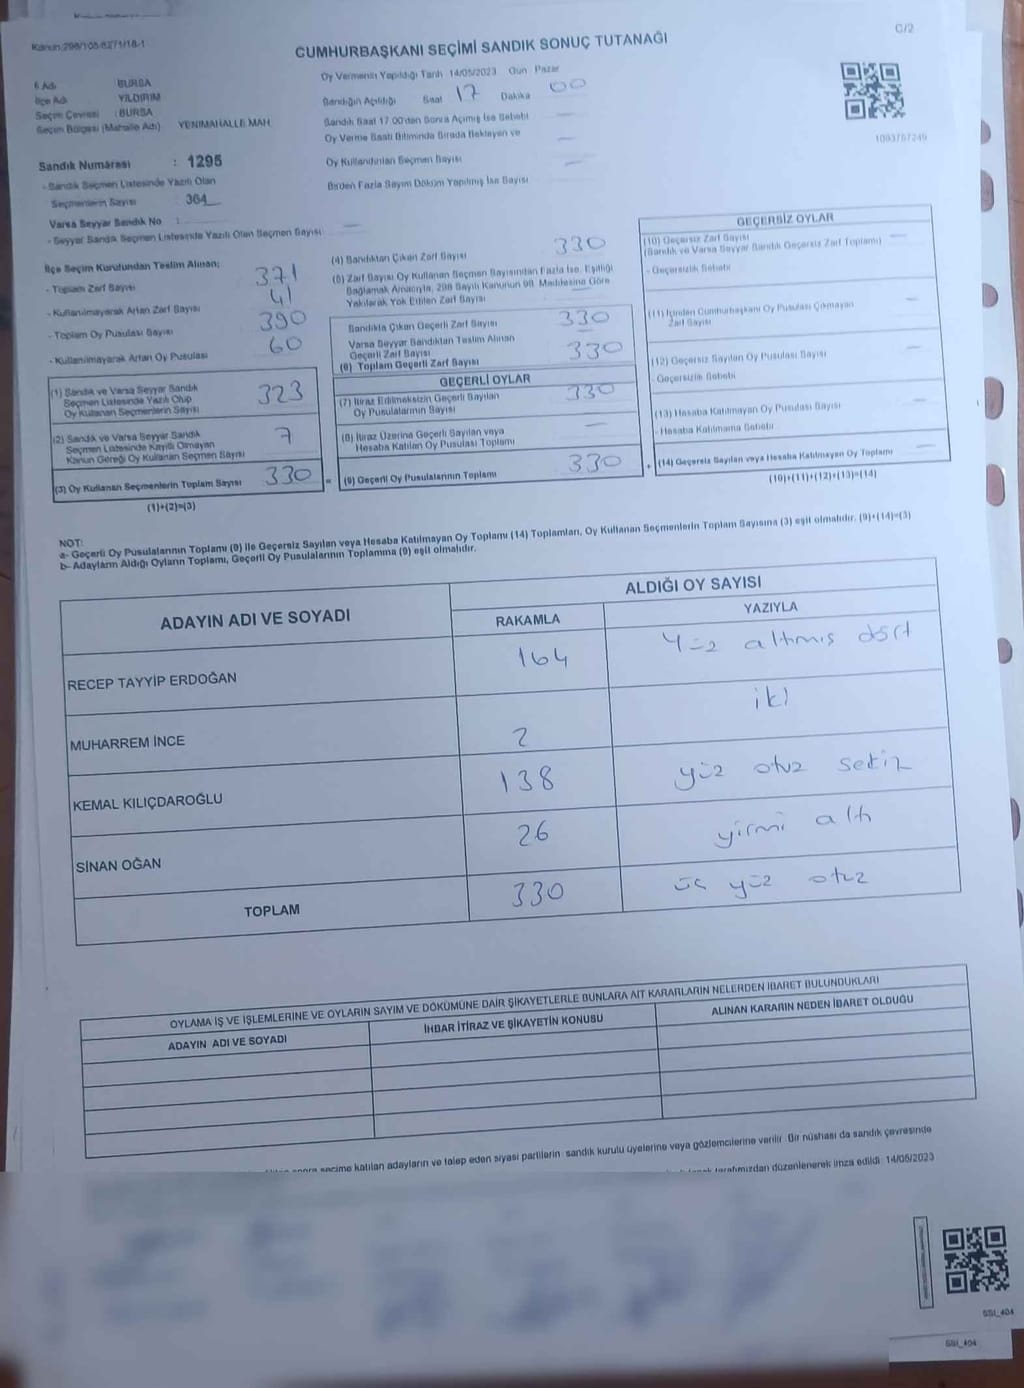 Kanun:298/105-6271/18-1
C/2
CUMHURBAŞKANI SEÇİMİ SANDIK SONUÇ TUTANAĞI
İl Adı BURSA
İlçe Adı YILDIRIM
Seçim Çevresi : BURSA
Seçim Bölgesi (Mahalle Adı) YENİMAHALLE MAH.
Sandık Numarası : 1295
- Sandık Seçmen Listesinde Yazılı Olan
Seçmenlerin Sayısı 364
Varsa Seyyar Sandık No :
- Seyyar Sandık Seçmen Listesinde Yazılı Olan Seçmen Sayısı
Oy Vermenin Yapıldığı Tarih 14/05/2023 Gün Pazar
Sandığın Açıldığı Saat 17 Dakika 00
Sandık Saat 17.00'den Sonra Açılmış İse Sebebi
Oy Verme Saati Bitiminde Sırada Bekleyen ve
Oy Kullandırılan Seçmen Sayısı
Birden Fazla Sayım Döküm Yapılmış İse Sayısı
1093767249
İlçe Seçim Kurulundan Teslim Alınan;
- Toplam Zarf Sayısı 371
- Kullanılmayarak Artan Zarf Sayısı 41
- Toplam Oy Pusulası Sayısı 390
- Kullanılmayarak Artan Oy Pusulası 60
(1) Sandık ve Varsa Seyyar Sandık
Seçmen Listesinde Yazılı Olup
Oy Kullanan Seçmenlerin Sayısı 323
(2) Sandık ve Varsa Seyyar Sandık
Seçmen Listesinde Kayıtlı Olmayan
Kanun Gereği Oy Kullanan Seçmen Sayısı 7
(3) Oy Kullanan Seçmenlerin Toplam Sayısı 330
(1)+(2)=(3)
(4) Sandıktan Çıkan Zarf Sayısı 330
(5) Zarf Sayısı Oy Kullanan Seçmen Sayısından Fazla İse, Eşitliği
Sağlamak Amacıyla, 298 Sayılı Kanunun 98. Maddesine Göre
Yakılarak Yok Edilen Zarf Sayısı
Sandıkta Çıkan Geçerli Zarf Sayısı 330
Varsa Seyyar Sandıktan Teslim Alınan
Geçerli Zarf Sayısı
(6) Toplam Geçerli Zarf Sayısı 330
GEÇERLİ OYLAR
(7) İtiraz Edilmeksizin Geçerli Sayılan
Oy Pusulalarının Sayısı 330
(8) İtiraz Üzerine Geçerli Sayılan veya
Hesaba Katılan Oy Pusulası Toplamı
= (9) Geçerli Oy Pusulalarının Toplamı 330
GEÇERSİZ OYLAR
(10) Geçersiz Zarf Sayısı
(Sandık ve Varsa Seyyar Sandık Geçersiz Zarf Toplamı)
- Geçersizlik Sebebi
(11) İçinden Cumhurbaşkanı Oy Pusulası Çıkmayan
Zarf Sayısı
(12) Geçersiz Sayılan Oy Pusulası Sayısı
- Geçersizlik Sebebi
(13) Hesaba Katılmayan Oy Pusulası Sayısı
- Hesaba Katılmama Sebebi
+ (14) Geçersiz Sayılan veya Hesaba Katılmayan Oy Toplamı
(10)+(11)+(12)+(13)=(14)
NOT:
a- Geçerli Oy Pusulalarının Toplamı (9) ile Geçersiz Sayılan veya Hesaba Katılmayan Oy Toplamı (14) Toplamları, Oy Kullanan Seçmenlerin Toplam Sayısına (3) eşit olmalıdır. (9)+(14)=(3)
b- Adayların Aldığı Oyların Toplamı, Geçerli Oy Pusulalarının Toplamına (9) eşit olmalıdır.
ADAYIN ADI VE SOYADI
ALDIĞI OY SAYISI
RAKAMLA YAZIYLA
RECEP TAYYİP ERDOĞAN 164 Yüz altmış dört
MUHARREM İNCE 2 iki
KEMAL KILIÇDAROĞLU 138 yüz otuz sekiz
SİNAN OĞAN 26 yirmi altı
TOPLAM 330 üç yüz otuz
OYLAMA İŞ VE İŞLEMLERİNE VE OYLARIN SAYIM VE DÖKÜMÜNE DAİR ŞİKAYETLERLE BUNLARA AİT KARARLARIN NELERDEN İBARET BULUNDUKLARI
ADAYIN ADI VE SOYADI İHBAR İTİRAZ VE ŞİKAYETİN KONUSU ALINAN KARARIN NEDEN İBARET OLDUĞU
sonra seçime katılan adayların ve talep eden siyasi partilerin sandık kurulu üyelerine veya gözlemcilerine verilir. Bir nüshası da sandık çevresinde
tarafımızdan düzenlenerek imza edildi. 14/05/2023
SSI_404
SSI_404